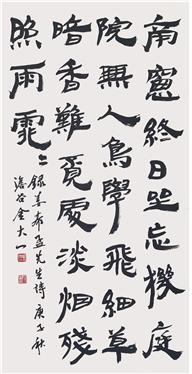 南窓終日坐忘機庭
院無人鳥學飛細草
暗香難覓處淡烟殘
照雨霏〻
錄姜希孟先生詩 庚子秋
谷金大